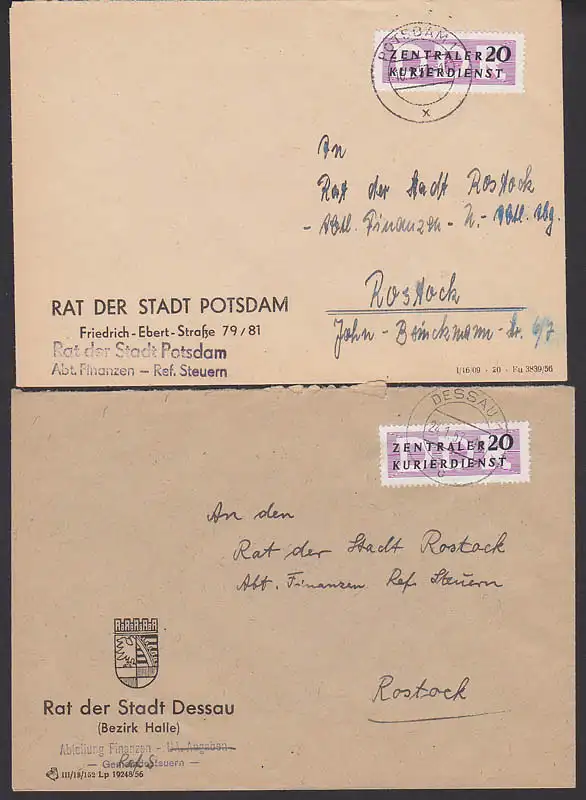 POTSDAM 1
ZENTRALER 20
KURIERDIENST
x
An
Rat der Stadt Rostock
- Abtl. Finanzen - u. - Abtl. Abg.
Rostock
John - Brinckmann - Str. 6/7
RAT DER STADT POTSDAM
Friedrich-Ebert-Straße 79/81
Rat der Stadt Potsdam
Abt. Finanzen — Ref. Steuern
I/16/09 · 20 · Fu 3839/56
DESSAU
ZENTRALER 20
KURIERDIENST
An den
Rat der Stadt Rostock
Abt. Finanzen Ref. Steuern
Rostock
Rat der Stadt Dessau
(Bezirk Halle)
Abteilung Finanzen - Abgaben
— Gemeindesteuern —
Ref. S
III/18/152 Lp 19248/56